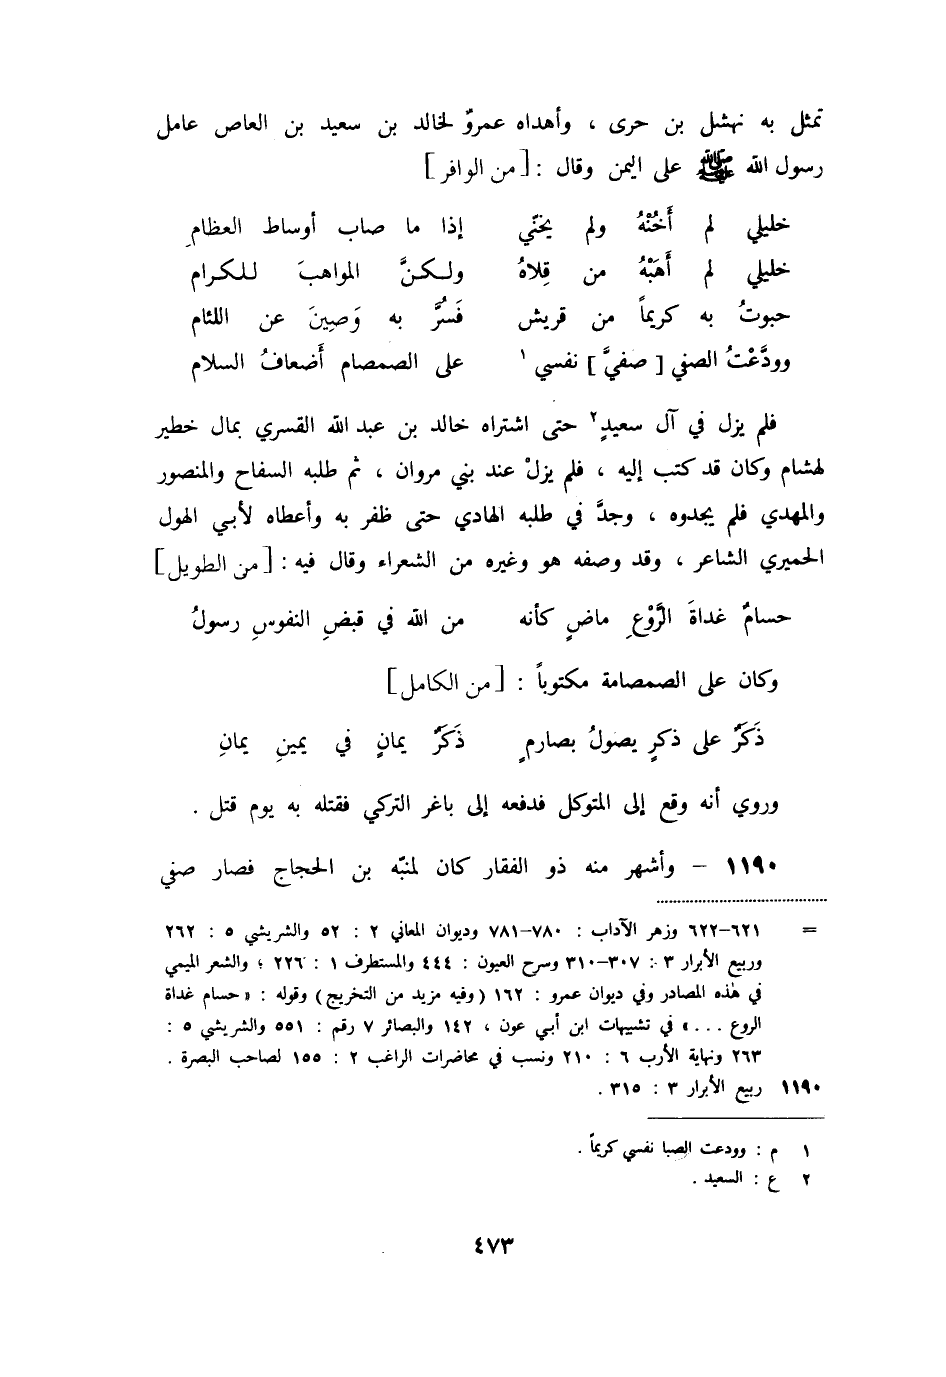 تمثل به نهشل بن حرى ، وأهداه عمروٌ لخالد بن سعيد بن العاص عامل
رسول الله ﷺ على اليمن وقال : [من الوافر]
خليلي لم أَخُنْهُ ولم يخنّي إذا ما صاب أوساط العظامِ
خليلي لم أَهَبْهُ من قِلاهُ ولكنَّ المواهبَ للكرام
حبوتُ به كريماً من قريش فَسُرَّ به وَصِينَ عن اللئام
وودَّعْتُ الصفي [ صفيَّ ] نفسي ١ على الصمصام أَضعافُ السلام
فلم يزل في آل سعيدٍ٢ حتى اشتراه خالد بن عبد الله القسري بمال خطير
لهشام وكان قد كتب إليه ، فلم يزلْ عند بني مروان ، ثم طلبه السفاح والمنصور
والمهدي فلم يجدوه ، وجدَّ في طلبه الهادي حتى ظفر به وأعطاه لأبي الهول
الحميري الشاعر ، وقد وصفه هو وغيره من الشعراء وقال فيه : [من الطويل]
حسامٌ غداةَ الرَّوْعِ ماضٍ كأنه من الله في قبضِ النفوسِ رسولُ
وكان على الصمصامة مكتوباً : [من الكامل]
ذَكَرٌ على ذكرٍ يصولُ بصارمٍ ذَكَرٌ يمانٍ في يمينِ يمانِ
وروي أنه وقع إلى المتوكل فدفعه إلى باغر التركي فقتله به يوم قتل .
١١٩٠ – وأشهر منه ذو الفقار كان لمنبّه بن الحجاج فصار صفي
= ٦٢١–٦٢٢ وزهر الآداب : ٧٨٠–٧٨١ وديوان المعاني ٢ : ٥٢ والشريشي ٥ : ٢٦٢
وربيع الأبرار ٣ : ٣٠٧–٣١٠ وسرح العيون : ٤٤٤ والمستطرف ١ : ٢٢٦ ؛ والشعر الميمي
في هذه المصادر وفي ديوان عمرو : ١٦٢ (وفيه مزيد من التخريج) وقوله : « حسام غداة
الروع ... » في تشبيهات ابن أبي عون ، ١٤٢ والبصائر ٧ رقم : ٥٥١ والشريشي ٥ :
٢٦٣ ونهاية الأرب ٦ : ٢١٠ ونسب في محاضرات الراغب ٢ : ١٥٥ لصاحب البصرة .
١١٩٠ ربيع الأبرار ٣ : ٣١٥ .
١ م : وودعت الصبا نفسي كريماً .
٢ ع : السعيد .
٤٧٣